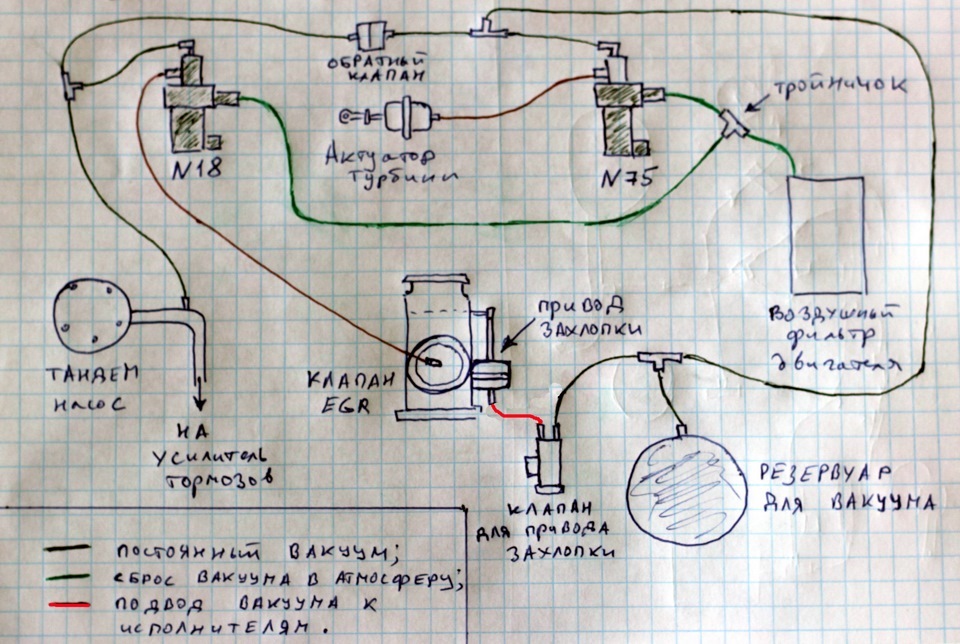 ОБРАТНЫЙ
КЛАПАН
ТРОЙНИЧОК
N18
Актуатор
турбины
N75
ПРИВОД
ЗАХЛОПКИ
ВОЗДУШНЫЙ
фильтр
двигателя
ТАНДЕМ
НАСОС
КЛАПАН
EGR
НА
УСИЛИТЕЛЬ
тормозов
РЕЗЕРВУАР
ДЛЯ ВАКУУМА
КЛАПАН
ДЛЯ ПРИВОДА
ЗАХЛОПКИ
ПОСТОЯННЫЙ ВАКУУМ;
СБРОС ВАКУУМА В АТМОСФЕРУ;
ПОДВОД ВАКУУМА К
ИСПОЛНИТЕЛЯМ.